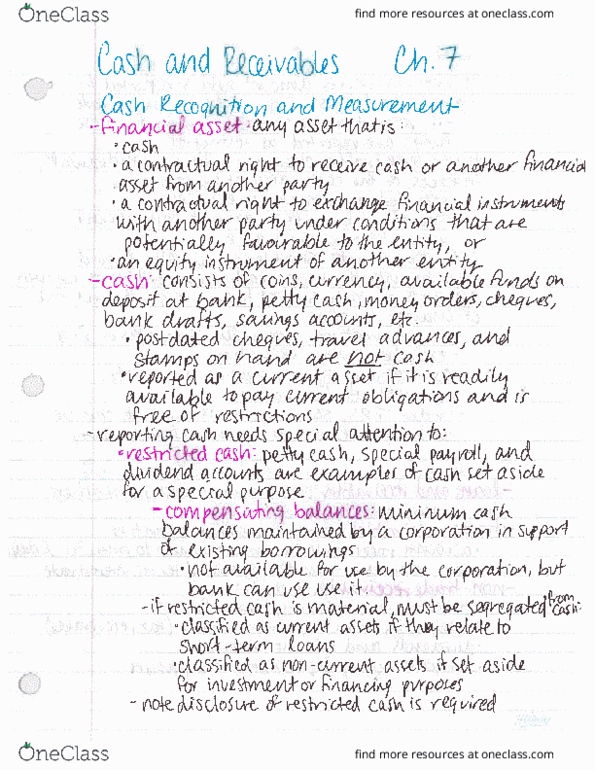 OneClass
find more resources at oneclass.com
Cash and Receivables Ch. 7
Cash Recognition and Measurement
-financial asset: any asset that is:
•cash
•a contractual right to receive cash or another financial
asset from another party
•a contractual right to exchange financial instruments
with another party under conditions that are
potentially favourable to the entity, or
•an equity instrument of another entity
-cash: consists of coins, currency, available funds on
deposit at bank, petty cash, money orders, cheques,
bank drafts, savings accounts, etc.
•postdated cheques, travel advances, and
stamps on hand are not cash
•reported as a current asset if it is readily
available to pay current obligations and is
free of restrictions
-reporting cash needs special attention to:
•restricted cash: petty cash, special payroll, and
dividend accounts are examples of cash set aside
for a special purpose
-compensating balances: minimum cash
balances maintained by a corporation in support
of existing borrowings
•not available for use by the corporation, but
bank can use use it.
-if restricted cash is material, must be segregated from cash:
•classified as current assets if they relate to
short-term loans
•classified as non-current assets if set aside
for investment or financing purposes
-note disclosure of restricted cash is required
OneClass
find more resources at oneclass.com